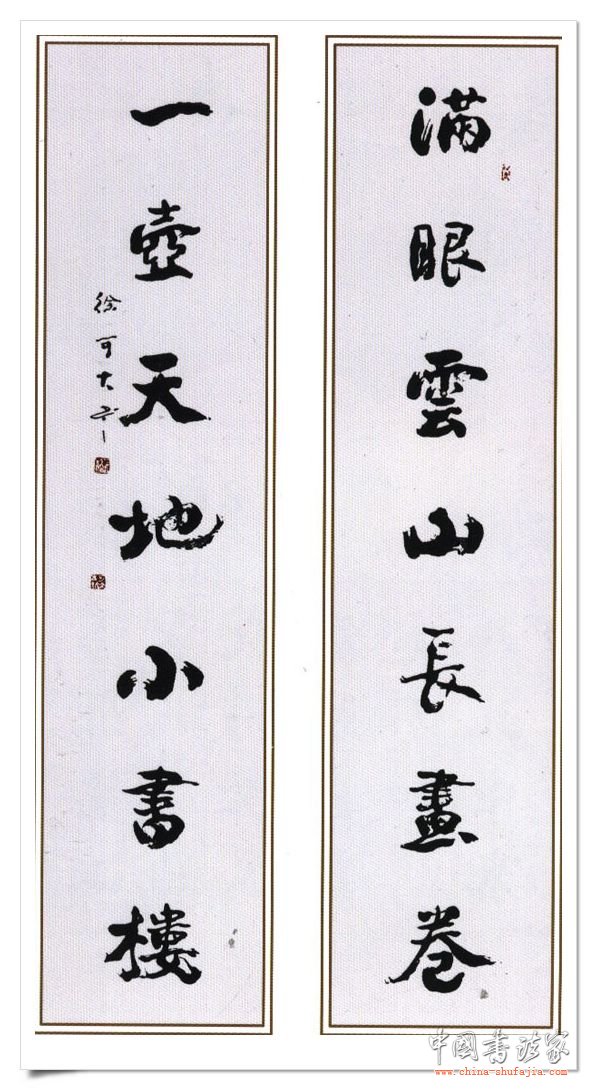 满眼雲山長畫卷
一壺天地小書樓
徐可大书
中国书法家
www.china-shufajia.com